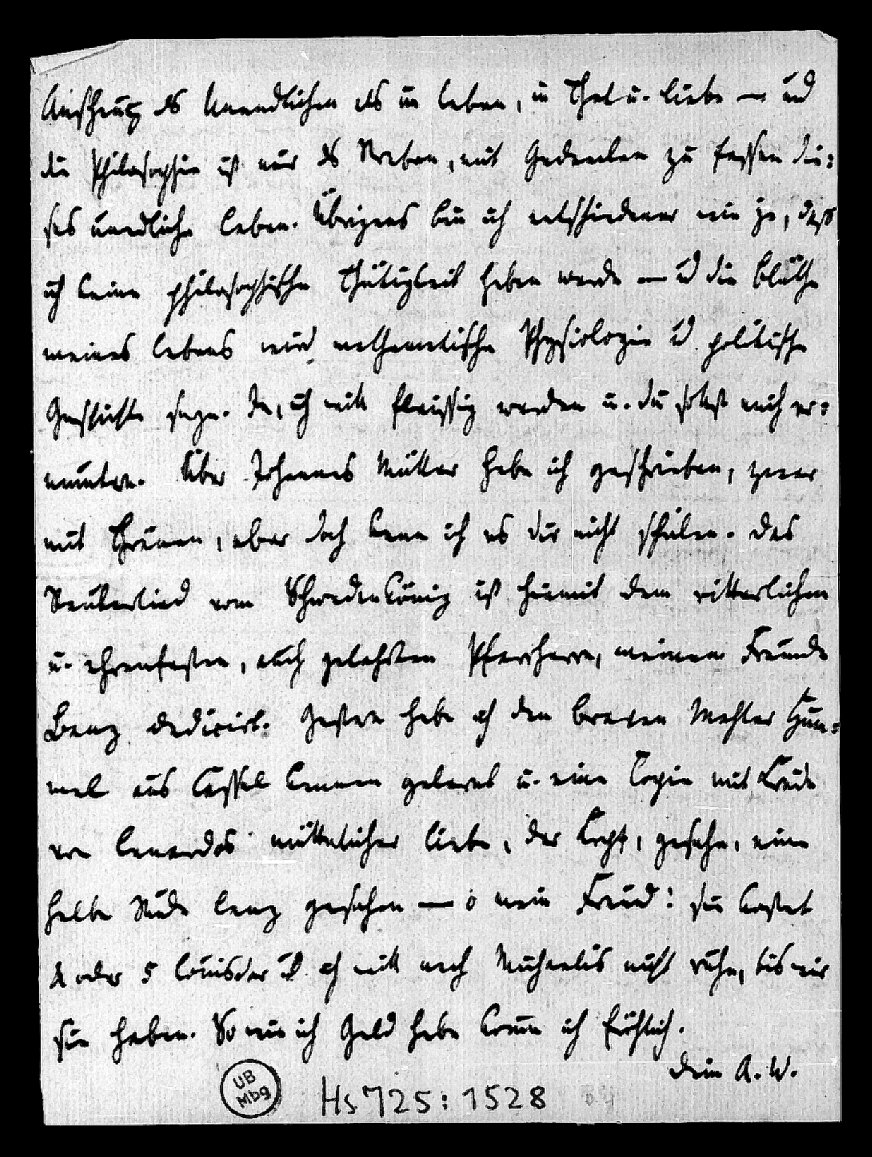 Anschaug ds Unendlichen als im Leben, in That u. Liebe — und
die Philosophie ist nur ds Streben, mit Gedanken zu fassen die-
ses unendliche Leben. Übrigens bin ich entschiedener wie je, daß
ich keine philosophische Thätigkeit haben werde — ud die Blüthe
meines Lebens wird mathematische Physiologie ud politische
Geschichte seyn. Da, ich will fleissig werden u. du sollst mich er-
muntern. Über Johannes Müller habe ich geschrieben, zwar
mit Thränen, aber doch kann ich es dir nicht schicken. Das
Reuterlied vom Schwedenkönig ist hiemit dem ritterlichen
u. ehrenfesten, auch gelahrten Pfarrherrn, meinem Freunde
Benz dedicirt. Gestern habe ich den braven Mahler Hum-
mel aus Cassel kennen gelernt u. eine Copie mit Kreide
von Lenardos mütterlicher Liebe, der Kopf, gesehn, eine
halbe Stude lang gesehen — o mein Freud! sie kostet
4 oder 5 Louisdor ud ich will nach Michaelis nicht ruhn, bis wir
sie haben. So wie ich Geld habe komm ich fröhlich.
Dein A. W.
UB
Mbg
Hs 725: 1528